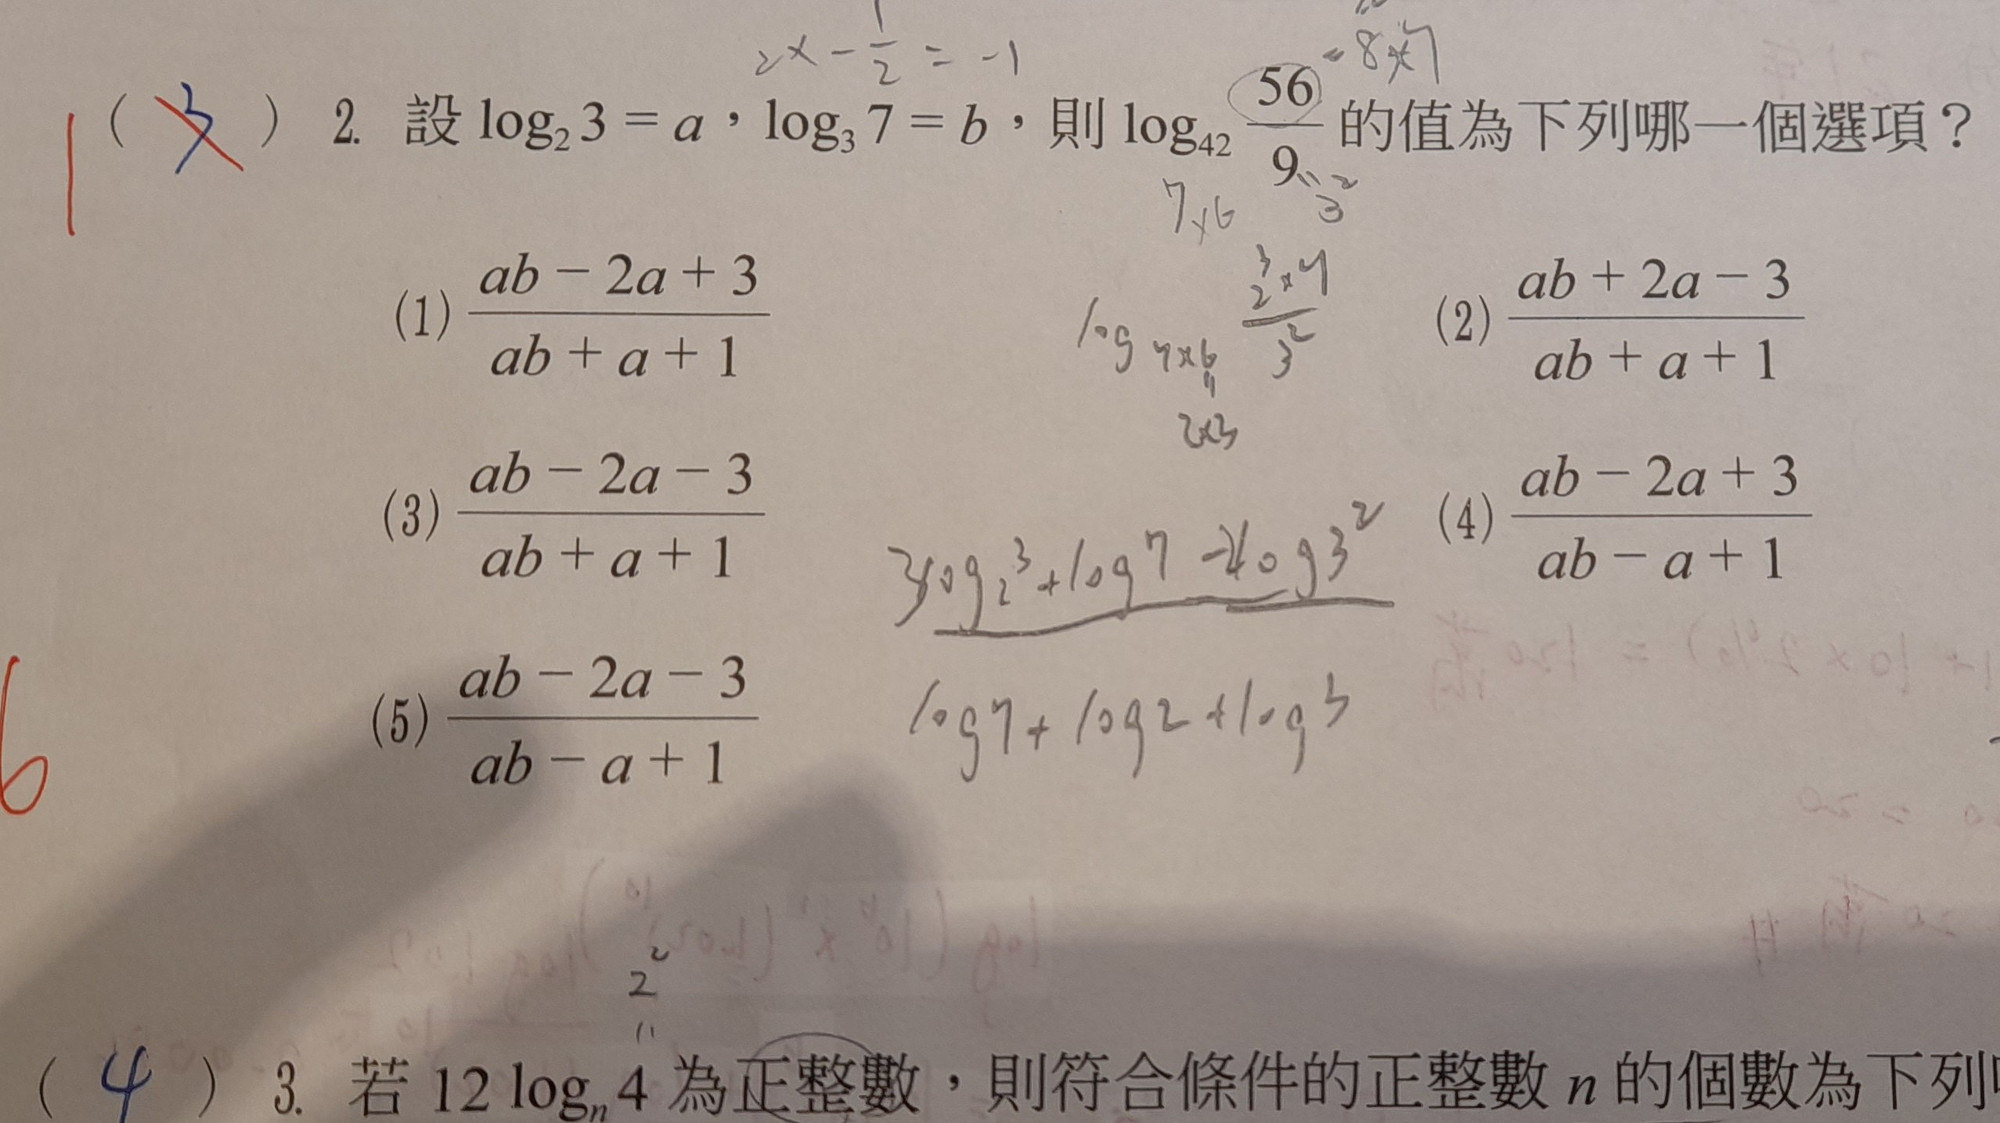 2x - 1/2 = -1
= 8×7
1 ( 3 ) 2. 設 log₂ 3 = a，log₃ 7 = b，則 log₄₂ 56/9 的值為下列哪一個選項？
7×6
= 3²
(1) (ab − 2a + 3)/(ab + a + 1)
(2) (ab + 2a − 3)/(ab + a + 1)
log 7×6 (2³×7)/3²
2×3
(3) (ab − 2a − 3)/(ab + a + 1)
(4) (ab − 2a + 3)/(ab − a + 1)
3log₂³ + log7 − 2log3²
log7 + log2 + log3
(5) (ab − 2a − 3)/(ab − a + 1)
6
2²
( 4 ) 3. 若 12 logₙ 4 為正整數，則符合條件的正整數 n 的個數為下列